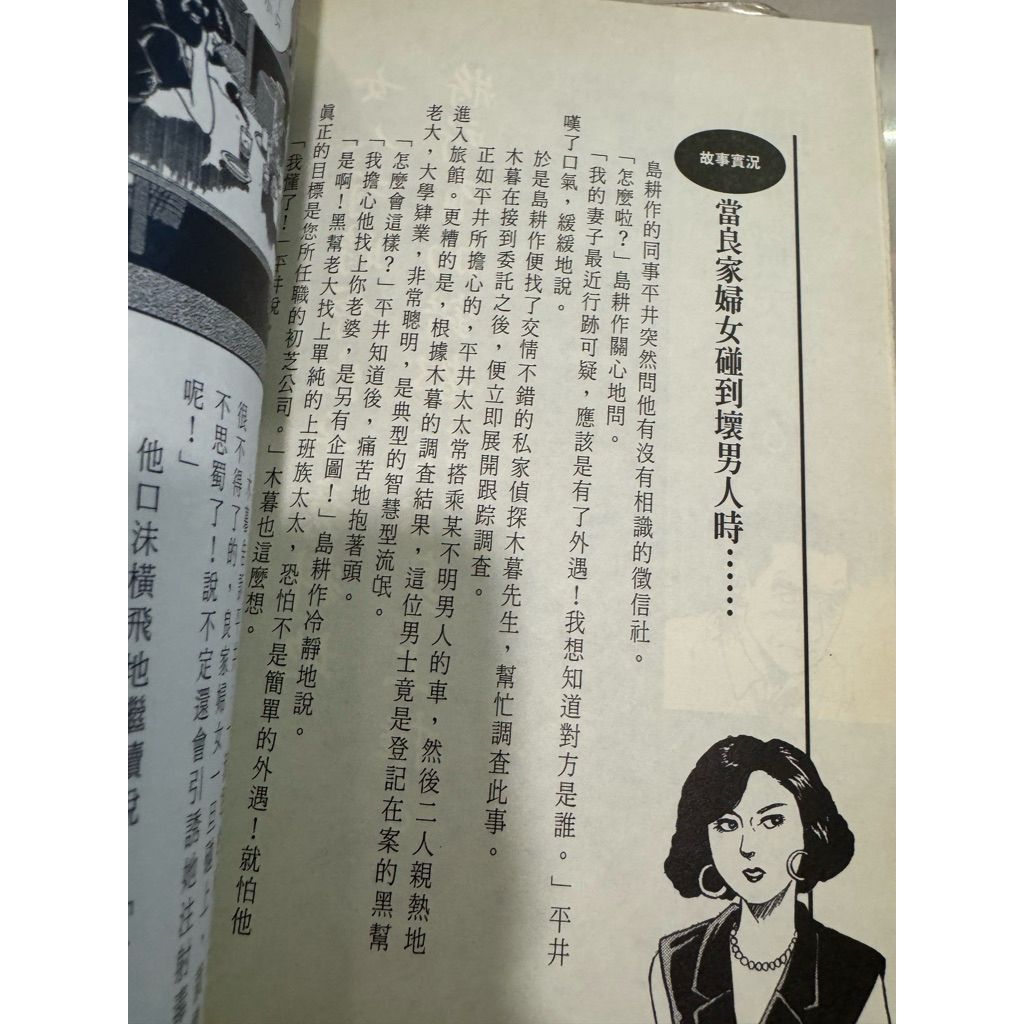 故事實況
當良家婦女碰到壞男人時……
島耕作的同事平井突然問他有沒有相識的徵信社。
「怎麼啦？」島耕作關心地問。
「我的妻子最近行跡可疑，應該是有了外遇！我想知道對方是誰。」平井
嘆了口氣，緩緩地說。
於是島耕作便找了交情不錯的私家偵探木暮先生，幫忙調查此事。
木暮在接到委託之後，便立即展開跟踪調查。
正如平井所擔心的，平井太太常搭乘某不明男人的車，然後二人親熱地
進入旅館。更糟的是，根據木暮的調查結果，這位男士竟是登記在案的黑幫
老大，大學肄業，非常聰明，是典型的智慧型流氓。
「怎麼會這樣？」平井知道後，痛苦地抱著頭。
「我擔心他找上你老婆，是另有企圖！」島耕作冷靜地說。
「是啊！黑幫老大找上單純的上班族太太，恐怕不是簡單的外遇！就怕他
眞正的目標是您所任職的初芝公司。」木暮也這麼想。
「我懂了！」平井說。
很不得了的，良家婦女一
不思蜀了！說不定還會引誘她注射
呢！」
他口沫橫飛地繼續說